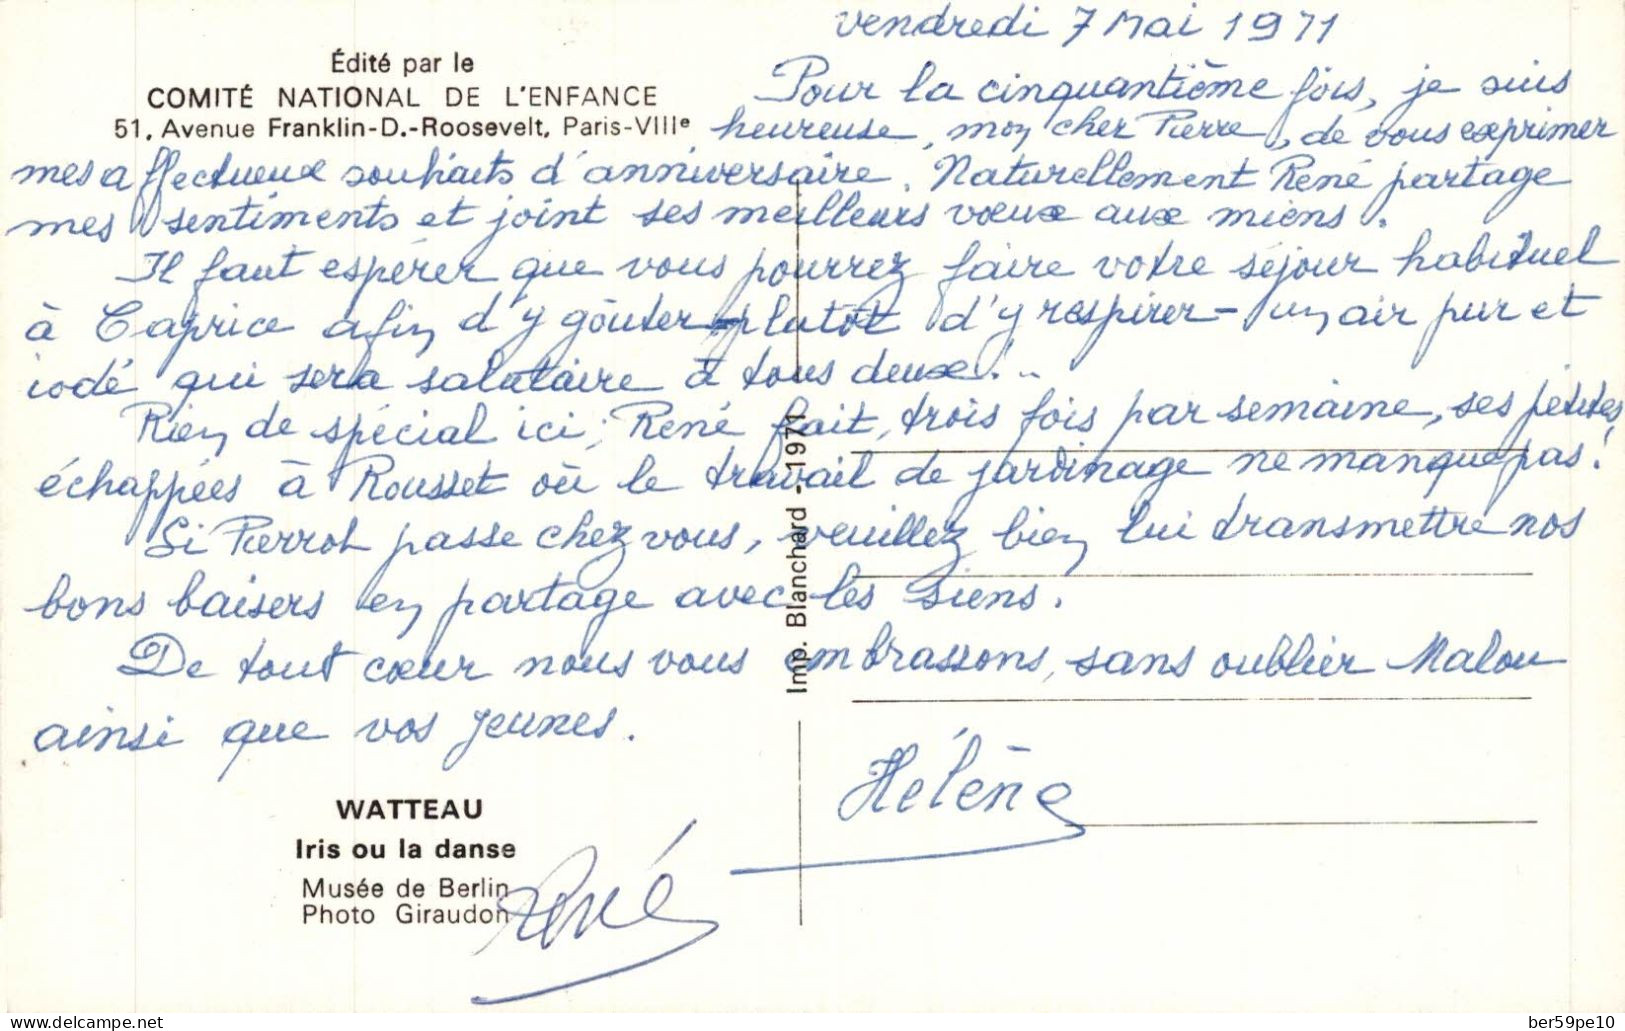 vendredi 7 Mai 1971
Édité par le
COMITÉ NATIONAL DE L'ENFANCE
51, Avenue Franklin-D.-Roosevelt, Paris-VIIIe
Pour la cinquantième fois, je suis
heureuse, mon cher Pierre, de vous exprimer
mes affectueux souhaits d'anniversaire. Naturellement René partage
mes sentiments et joint ses meilleurs vœux aux miens.
Il faut espérer que vous pourrez faire votre séjour habituel
à Caprice afin d'y goûter - plutôt d'y respirer - un air pur et
iodé qui sera salutaire à tous deux!..
Rien de spécial ici; René fait, trois fois par semaine, ses petites
échappées à Rousset où le travail de jardinage ne manque pas!
Si Pierrot passe chez vous, veuillez bien lui transmettre nos
bons baisers en partage avec les siens.
De tout cœur nous vous embrassons, sans oublier Malou
ainsi que vos jeunes.
Hélène
René
WATTEAU
Iris ou la danse
Musée de Berlin
Photo Giraudon
Imp. Blanchard - 1971
delcampe.net
ber59pe10